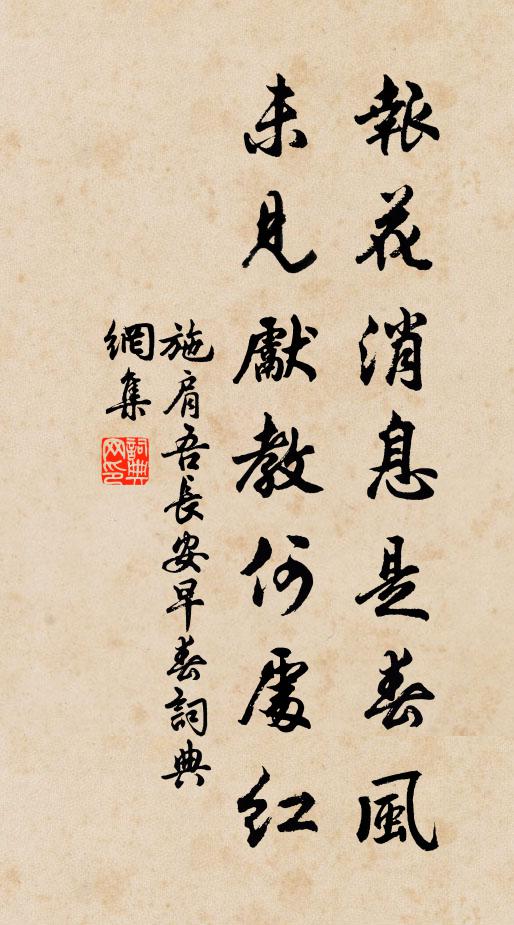 報花消息是春風
未見獻教何處紅
施肩吾長安早春詞典
網集
詞典网印